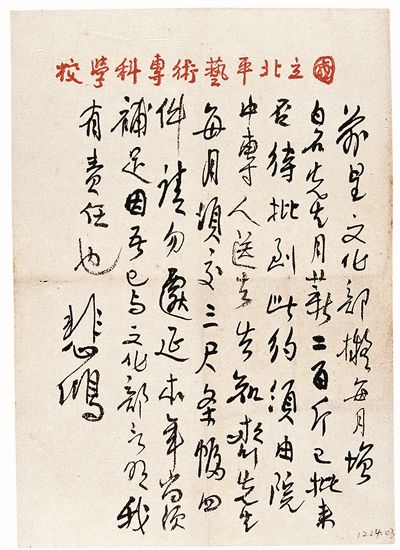 國立北平藝術專科學校
前呈文化部擬每月增
白石先生月薪二百斤已批來
否待批到此約須由院
中專人送去告知齊先生
每月須交三尺条幅四
件請勿延本年尚須
補足因吾已与文化部言明我
有責任也
悲鴻